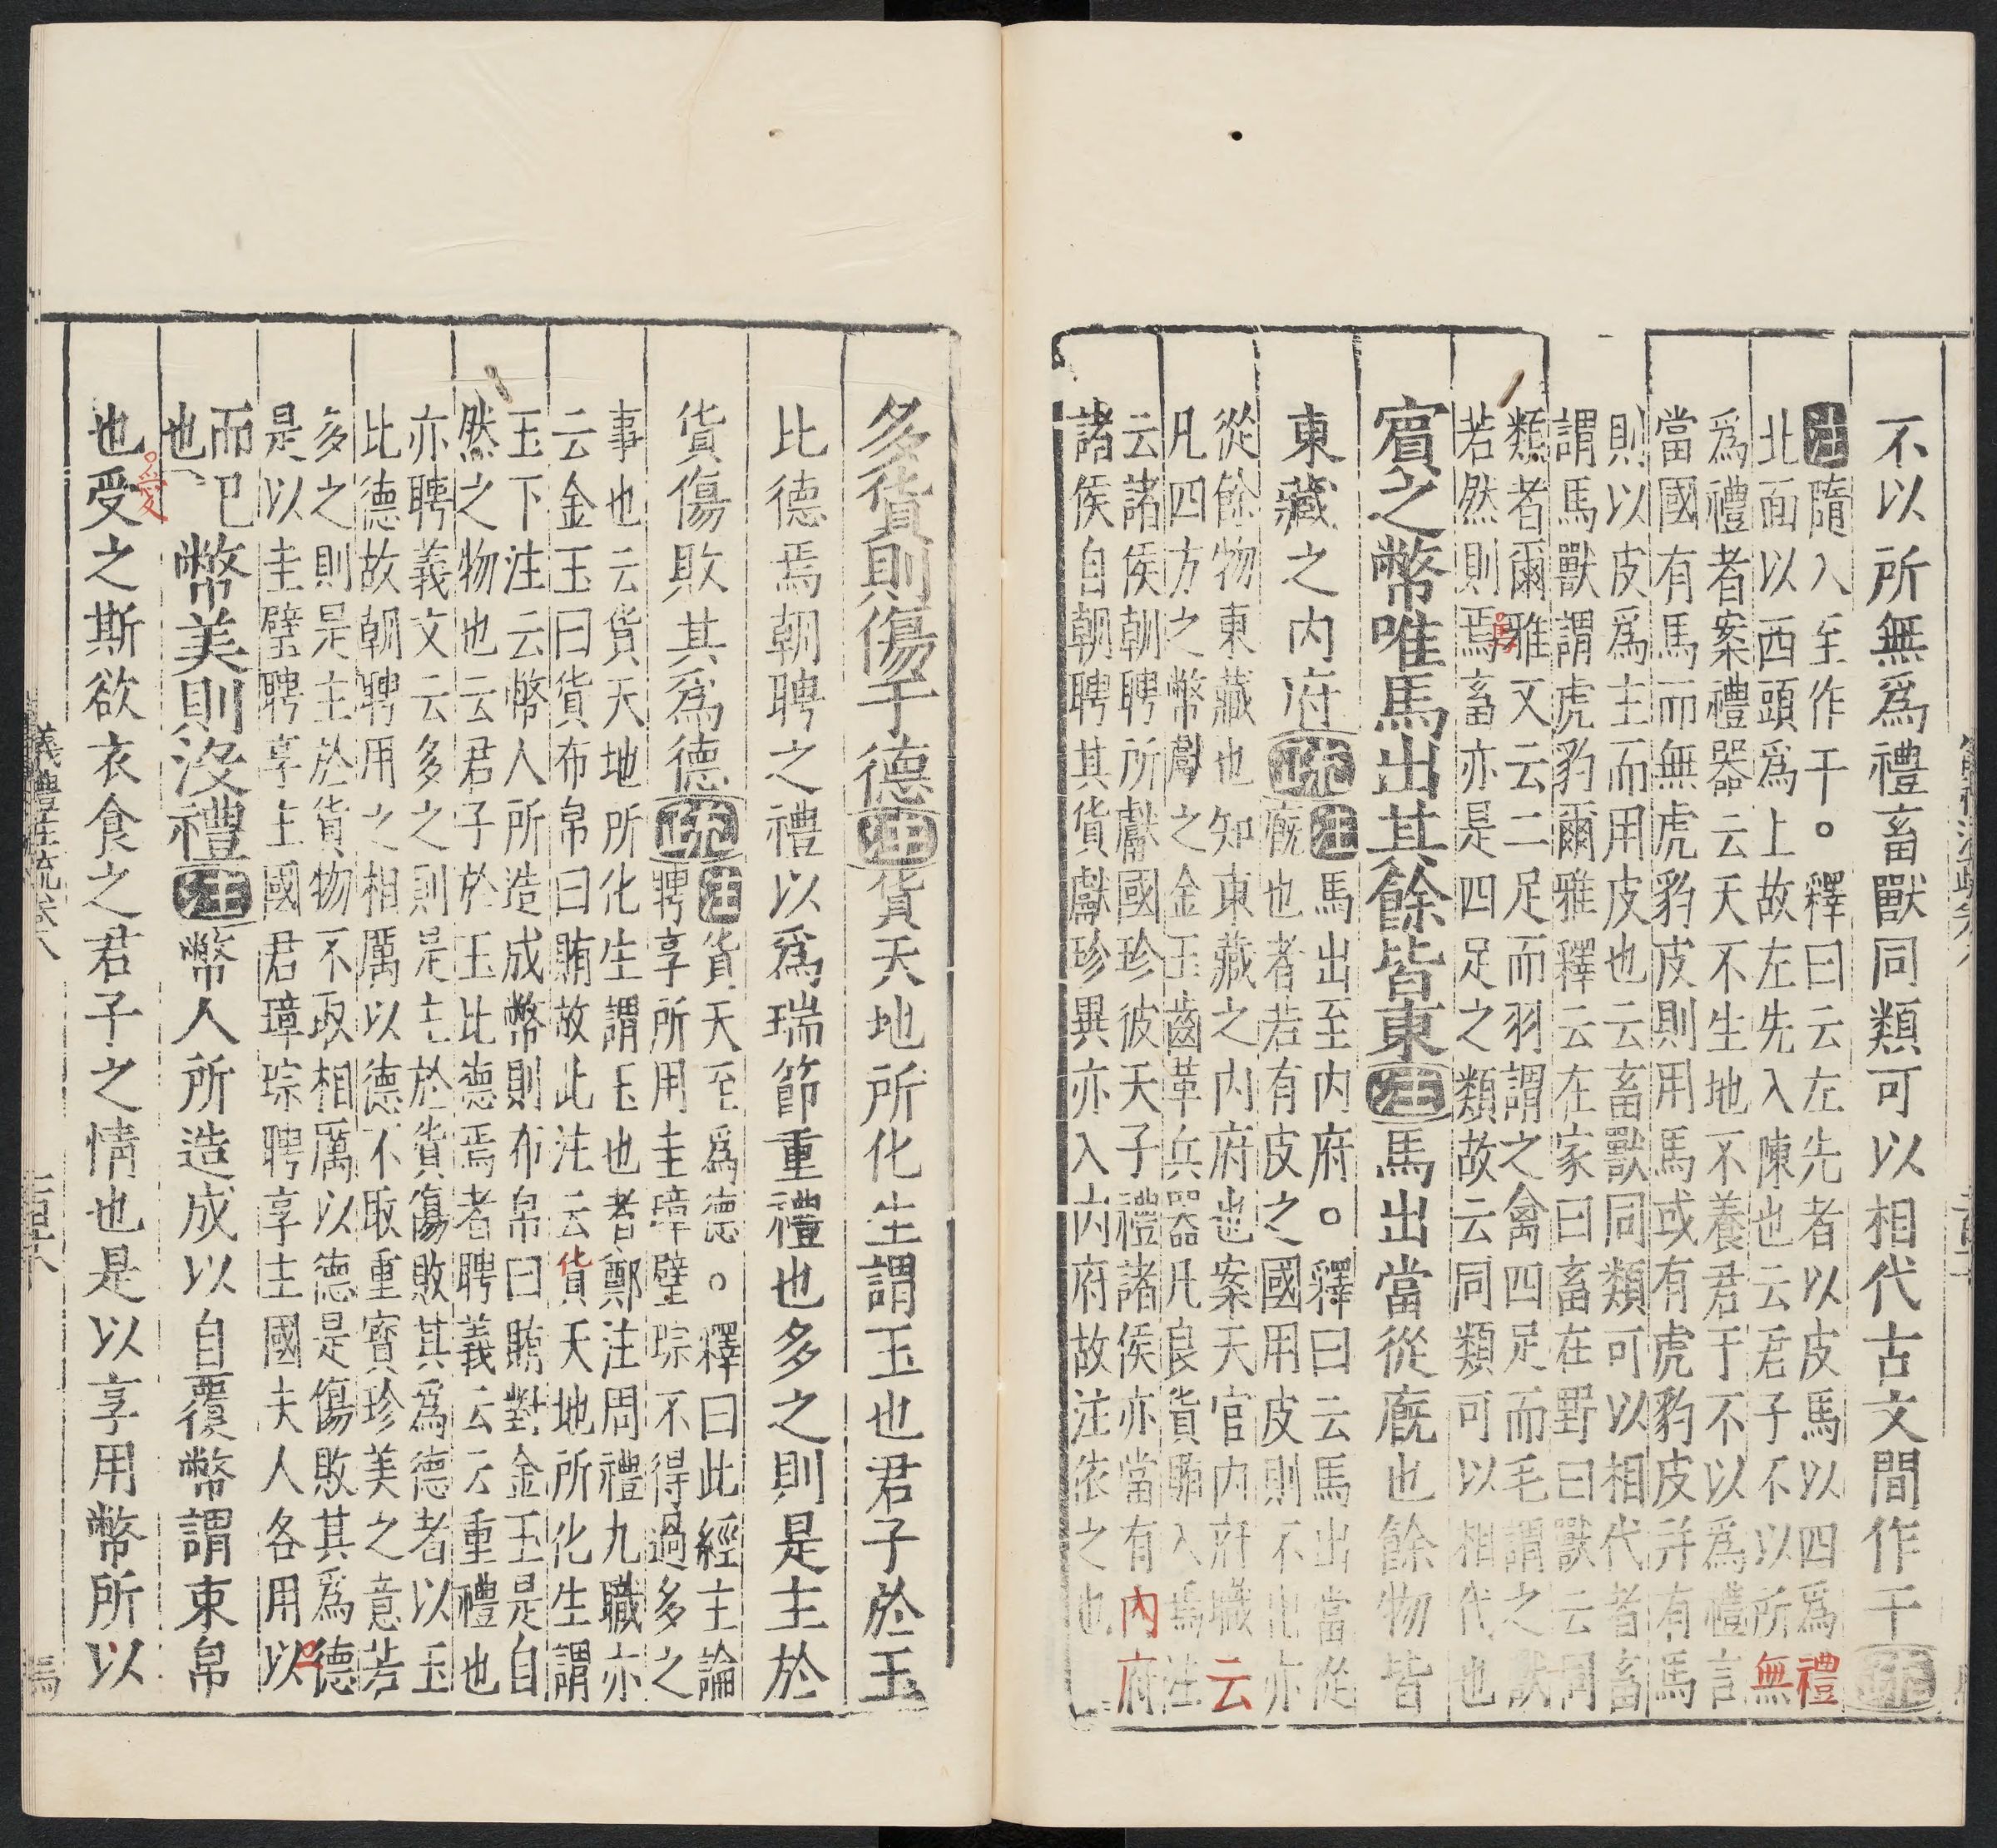 不以所無爲禮畜獸同類可以相代古文間作干疏
注隨入至作干。釋曰云左先者以皮馬以四爲禮
北面以西頭爲上故左先入陳也云君子不以所無
爲禮者案禮器云天不生地不養君于不以爲禮言
當國有馬而無虎豹皮則用馬或有虎豹皮并有馬
則以皮爲主而用皮也云畜獸同類可以相代者畜
謂馬獸謂虎豹爾雅釋云在家曰畜在野曰獸云同
類者爾雅又云二足而羽謂之禽四足而毛謂之獸
若然則焉畜亦是四足之類故云同類可以相代也
禺
賔之幣唯馬出其餘皆東注馬出當從廐也餘物皆
東藏之内府疏注馬出至内府。釋曰云馬出當從
廐也者若有皮之國用皮則不出亦
從餘物東藏也知東藏之内府也案天官内府職云
凡四方之幣獻之金玉齒革兵器凡良貨賄入焉注
云諸侯朝聘所獻國珍彼天子禮諸侯亦當有内府
諸侯自朝聘其貨獻珍異亦入内府故注依之也
多貨則傷于德注貨天地所化生謂玉也君子於玉
比德焉朝聘之禮以爲瑞節重禮也多之則是主於
貨傷敗其爲德疏注貨天至爲德。釋曰此經主論
聘享所用圭璋璧琮不得過多之
事也云貨天地所化生謂玉也者鄭注周禮九職亦
云金玉曰貨布帛曰賄故此注云貨天地所化生謂
玉下注云幣人所造成幣則布帛曰賄對金玉是自
然之物也云君子於玉比德焉者聘義云云重禮也
亦聘義文云多之則是主於貨傷敗其爲德者以玉
比德故朝聘用之相厲以德不取重寳珍美之意若
多之則是主於貨物不取相厲以德是傷敗其爲德
是以圭璧聘享主國君璋琮聘享主國夫人各用以
而已
也幣美則没禮注幣人所造成以自覆幣謂束帛
愛
也受之斯欲衣食之君子之情也是以享用幣所以
儀禮注疏卷八